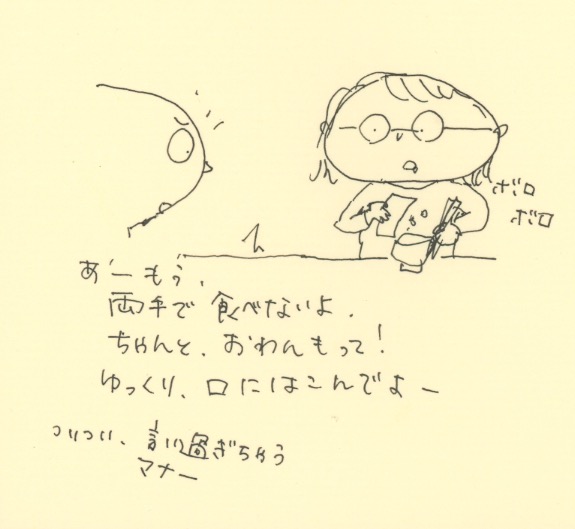 ボロ
ボロ
あーもぅ、
両手で食べないよ.
ちゃんと、おわんもって!
ゆっくり、口にはこんでよー
ついつい、言い過ぎちゃう
マナー